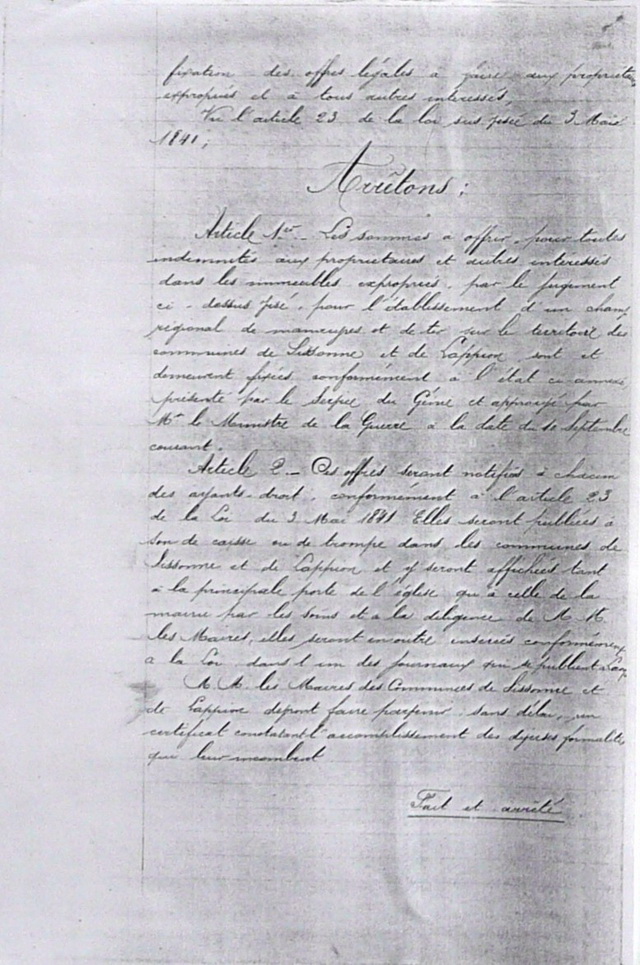 fixation des offres légales à faire aux propriétaires
expropriés et à tous autres intéressés,
Vu l'article 23 de la loi sus visée du 3 Mai
1841;
Arrêtons:
Article 1er - Les sommes à offrir pour toutes
indemnités aux propriétaires et autres intéressés
dans les immeubles expropriés, par le jugement
ci-dessus visé, pour l'établissement d'un champ
régional de manœuvres et de tir sur le territoire des
communes de Sissonne et de Lappion sont et
demeurent fixées conformément à l'état ci annexé
présenté par le Service du Génie et approuvé par
Mr le Ministre de la Guerre à la date du Septembre
courant.
Article 2 - Ces offres seront notifiées à chacun
des ayants-droit, conformément à l'article 23
de la Loi du 3 Mai 1841. Elles seront publiées à
son de caisse ou de trompe dans les communes de
Sissonne et de Lappion et y seront affichées tant
à la principale porte de l'église qu'à celle de la
mairie par les soins et à la diligence de M.M.
les Maires, elles seront en outre insérées conformément
à la Loi dans l'un des journaux qui se publient à
M.M. les Maires des Communes de Sissonne et
de Lappion devront faire parvenir sans délai, un
certificat constatant l'accomplissement des diverses formalités
qui leur incombent
Fait et arrêté